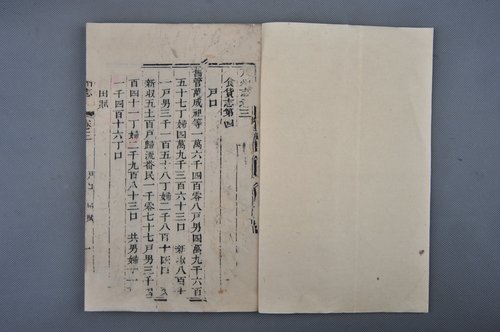 志卷三
食貨志第四
戶口
舊管萬成祖等一萬六千四百零八戶男四萬九千六百
五十七丁婦四萬九千三百六十三口 新收八百十
一戶男三千一百五十八丁婦二千八百十四口 又
新收五土百戶歸流番民一千零七十七戶男三千
四十一丁婦二千九百八十三口 共男婦十一
千四百十六丁口
田賦
卷三